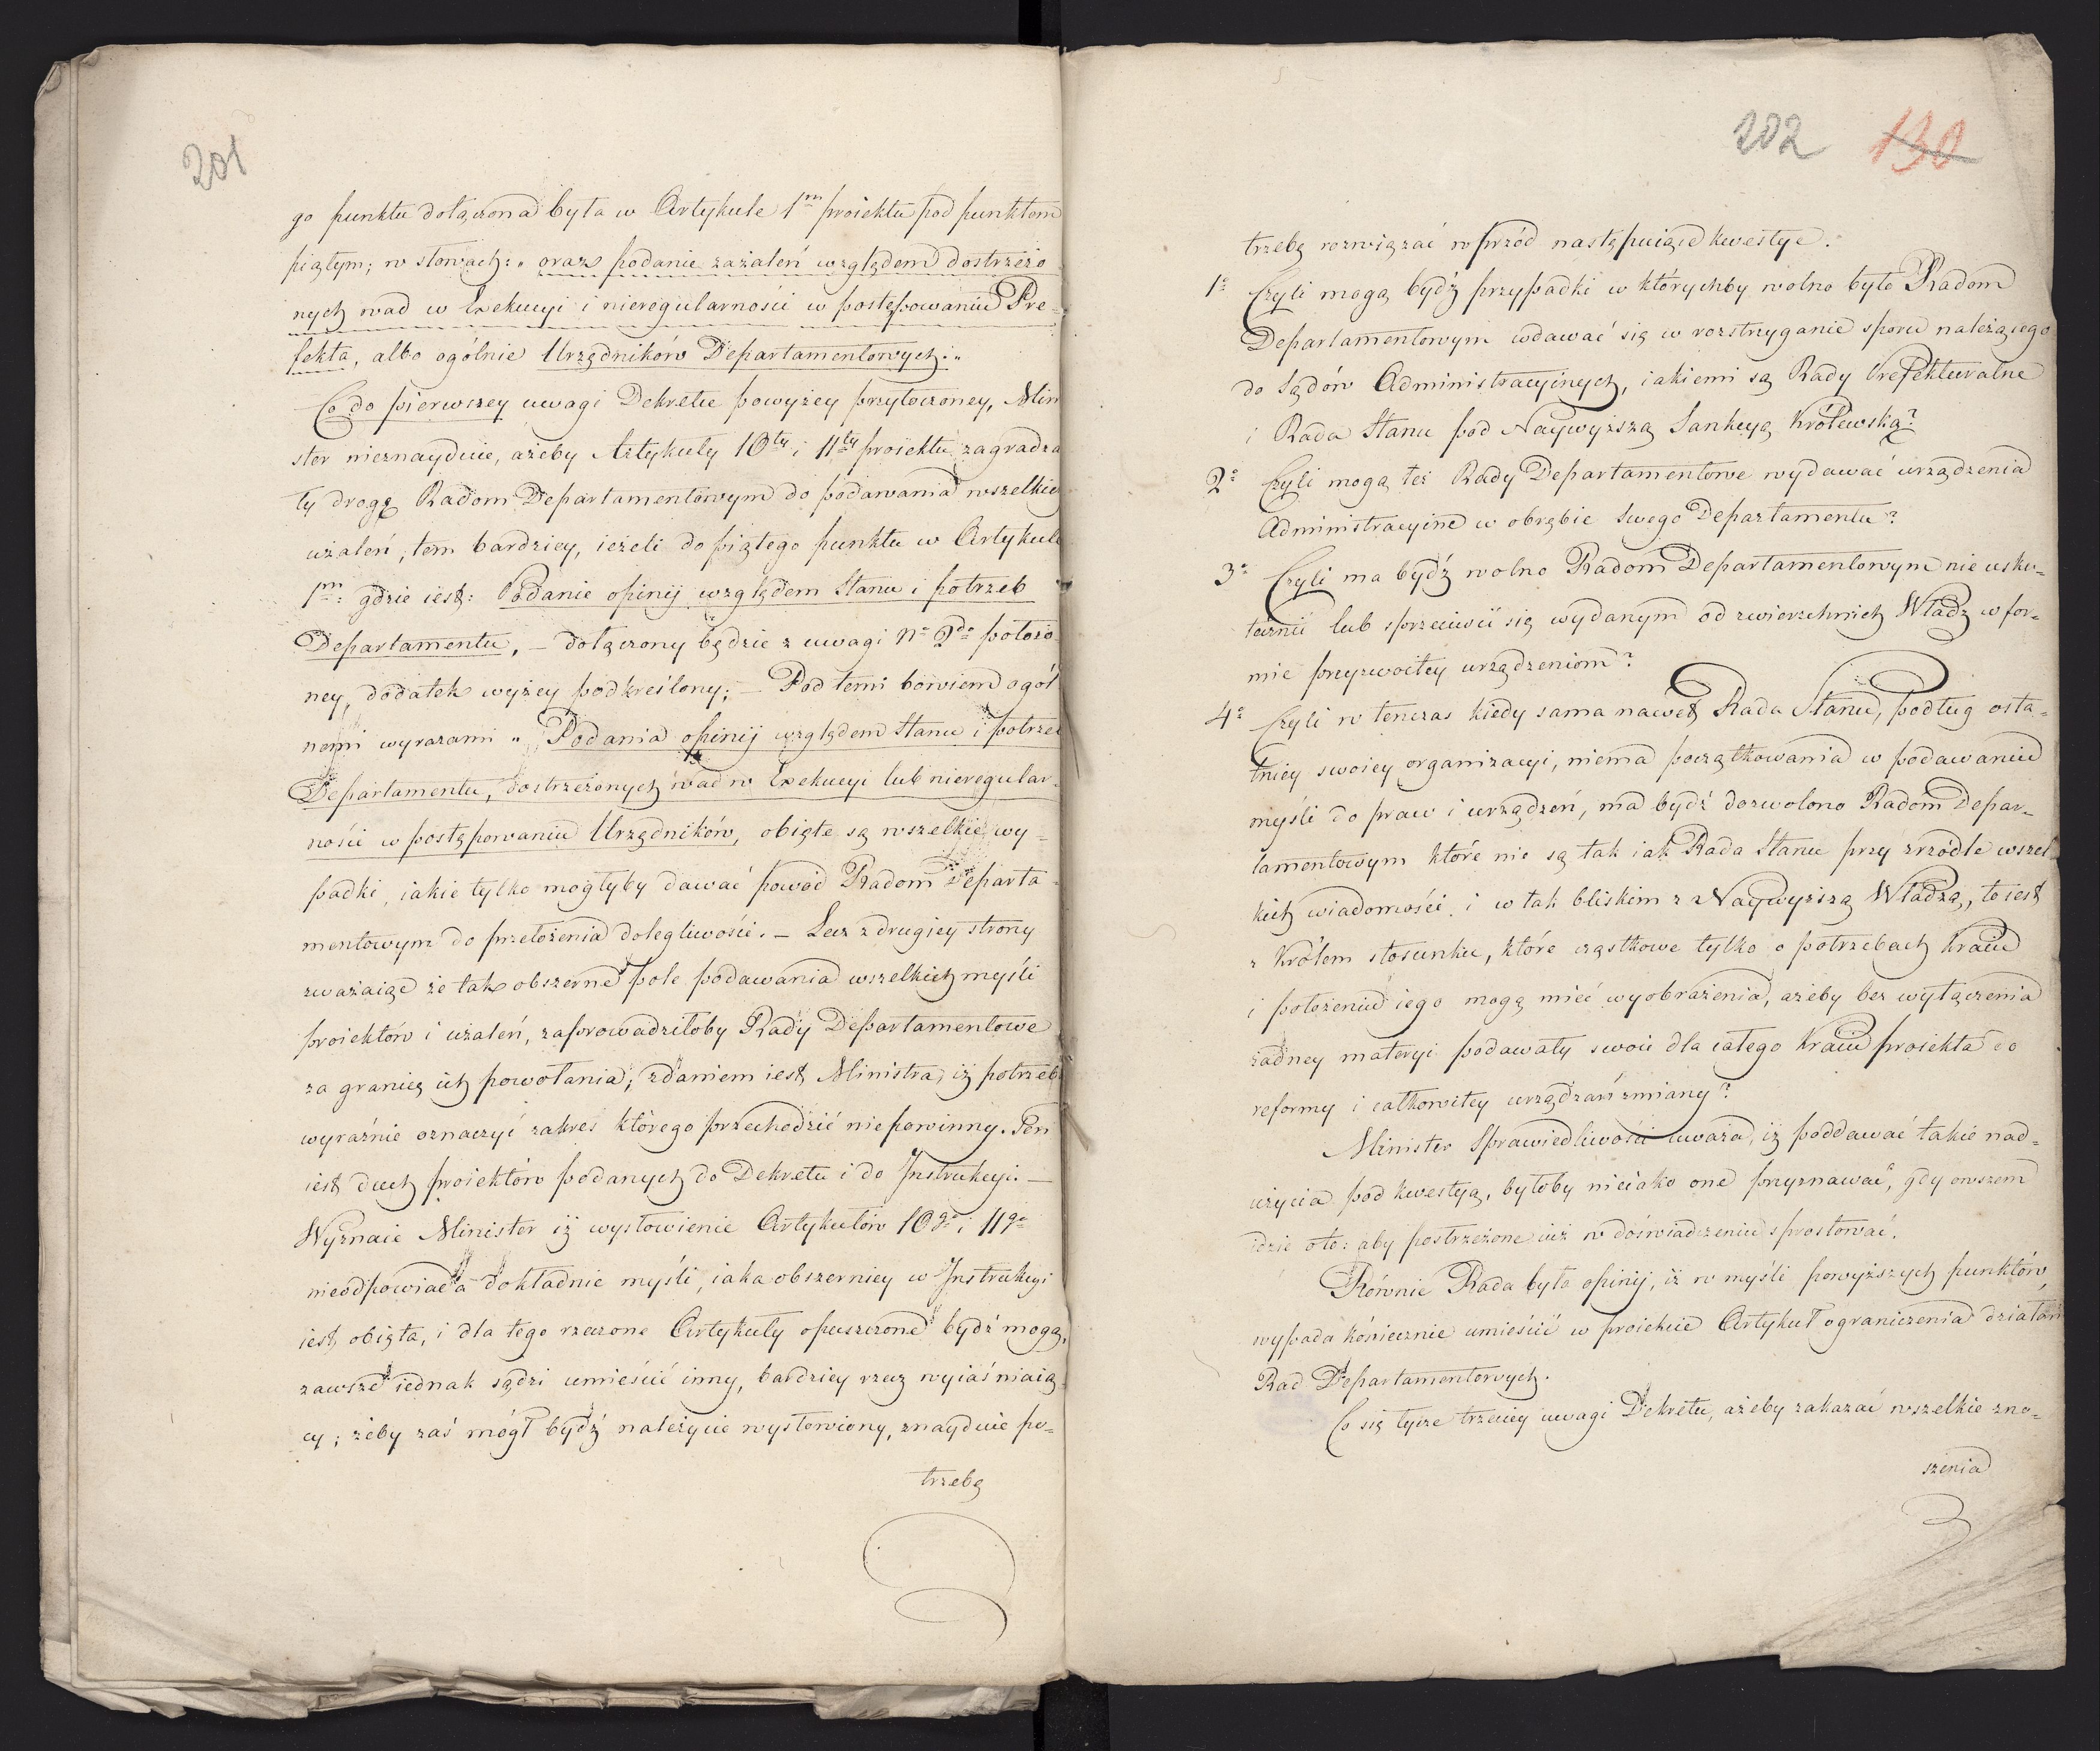 201
go punktu dołączona była w Artykule 1m proiektu pod punktem
piątym; w słowach: „ oraz podanie zażaleń względem dostrzeżo
nych wad w Exekucyi i nieregularności w postępowaniu Pre-
fekta, albo ogólnie Urzędników Departamentowych: „
Co do pierwszey uwagi Dekretu powyżey przytoczoney, Mini
ster nieznayduie, ażeby Artykuły 10ty i 11ty proiektu zagradza
ły drogę Radom Departamentowym do podawania wszelkich
użaleń, tem bardziey, ieżeli do piątego punktu w Artykule
1m: gdzie iest: Podanie opinij względem Stanu i potrzeb
Departamentu, – dołączony będzie z uwagi No 2do położo
ney, dodatek wyżey podkreślony; – Pod temi bowiem ogól
nemi wyrazami „ Podania opinij względem Stanu i potrzeb
Departamentu, dostrzeżonych wad w Exekucyi lub nieregular-
ności w postępowaniu Urzędników, obięte są wszelkie wy-
padki, iakie tylko mogłyby dawać powód Radom Departa-
mentowym do przełożenia dolegliwości. – Lecz z drugiey strony
zważaiąc że tak obszerne pole podawania wszelkich myśli
proiektów i użaleń, zaprowadziłoby Rady Departamentowe
za granicę ich powołania; zdaniem iest Ministra, iż potrzeba
wyraźnie oznaczyć zakres którego przechodzić niepowinny. Ten
iest duch proiektów podanych do Dekretu i do Instrukcyi. –
Wyznaie Minister iż wysłowienie Artykułów 10go i 11go
nieodpowiada dokładnie myśli, iaka obszerniey w Instrukcyi
iest obięta, i dla tego rzeczone Artykuły opuszczone bydź mogą,
zawsze iednak sądzi umieścić inny, bardziey rzecz wyiaśniaią
cy; żeby zaś mógł bydź należycie wysłowiony, znayduie po-
trzebę
202 130
trzebę rozwiązać wprzód następuiące kwestye.
1o Czyli mogą bydź przypadki w którychby wolno było Radom
Departamentowym wdawać się w rozstrzyganie sporu należącego
do Sądów Administracyinych, iakiemi są Rady Prefekturalne
i Rada Stanu pod Naywyższą Sankcyą Królewską?
2o Czyli mogą też Rady Departamentowe wydawać urządzenia
Administracyine w obrębie swego Departamentu?
3o Czyli ma bydź wolno Radom Departamentowym nie usku-
tecznić lub sprzeciwić się wydanym od zwierzchnich Władz w for-
mie przyzwoitey urządzeniom?
4o Czyli w tenczas kiedy sama nawet Rada Stanu, podług osta-
tniey swoiey organizacyi, niema początkowania w podawaniu
myśli do praw i urządzeń, ma bydź dozwolono Radom Depar-
tamentowym które nie są tak iak Rada Stanu przy zrzódle wszel
kich wiadomości, i w tak bliskim z Naywyższą Władzą, to iest
z Królem stosunku, które cząstkowe tylko o potrzebach Kraiu
i położeniu iego mogą mieć wyobrażenia, ażeby bez wyłączenia
żadney materyi podawały swoie dla całego Kraiu proiekta do
reformy i całkowitey urządzań zmiany?
Minister Sprawiedliwości uważa, iż poddawać takie nad-
użycia pod kwestyą, byłoby nieiako one przyznawać, gdy owszem
idzie oto: aby postrzeżone iuż w doświadczeniu sprostować.
Równie Rada była opinij, iż w myśli powyższych punktów,
wypada koniecznie umieścić w proiekcie Artykuł ograniczenia działań
Rad Departamentowych.
Co się tycze trzeciey uwagi Dekretu, ażeby zakazać wszelkie zno-
szenia